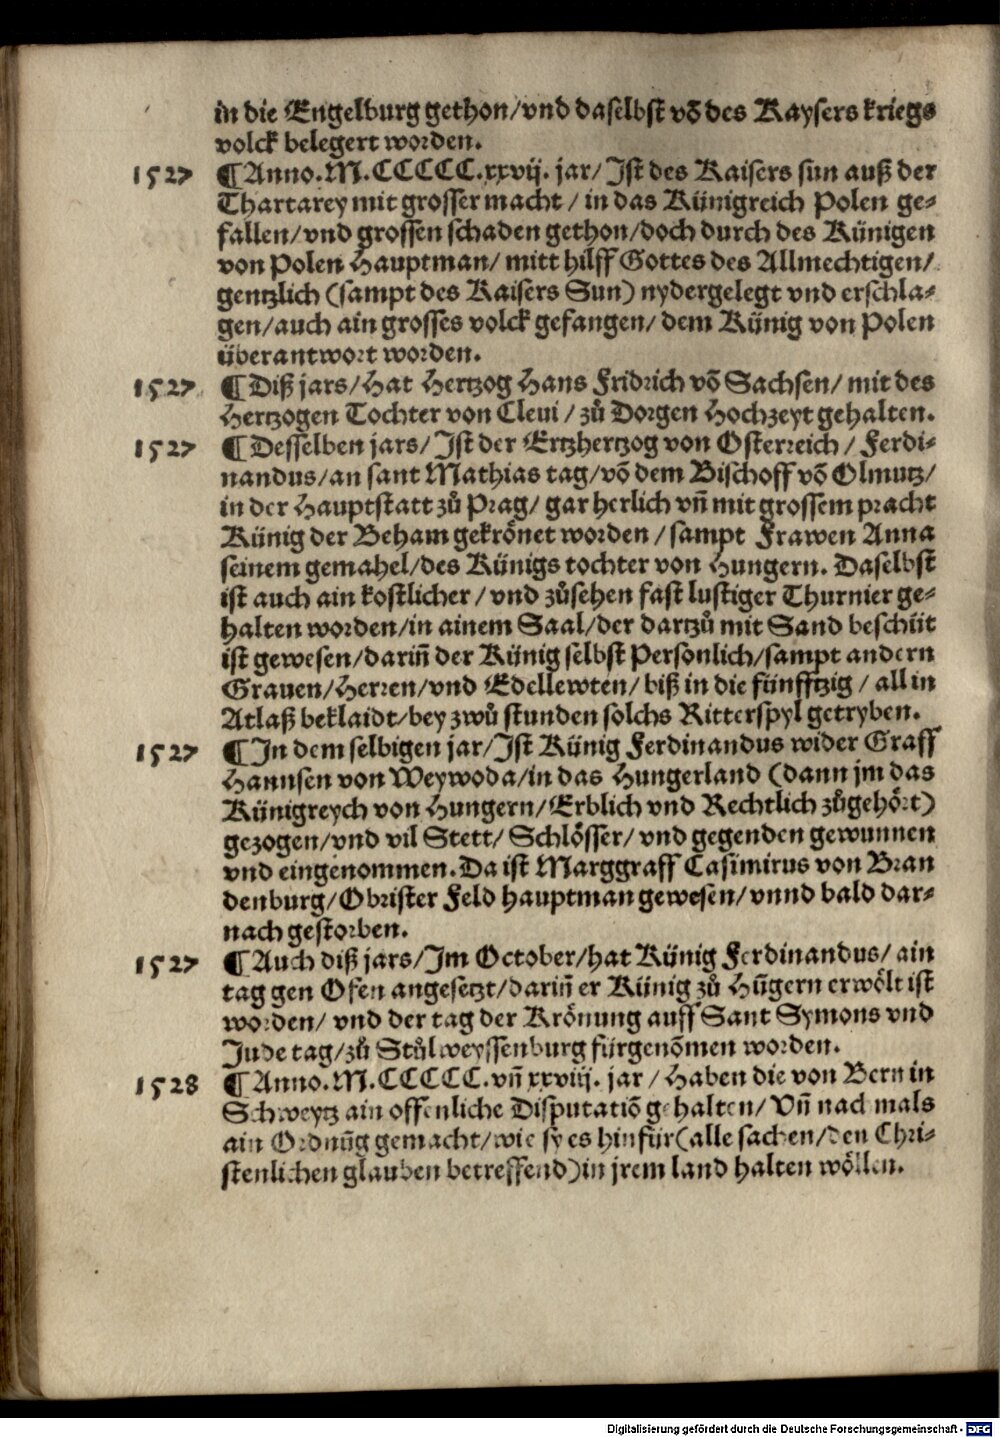 in die Engelburg gethon/vnd daselbst võ des Kaysers kriegs
volck belegert worden.
1527 ¶Anno.M.CCCCC.xxvij. jar/Ist des Kaisers sun auß der
Thartarey mit grosser macht / in das Künigreich Polen ge⸗
fallen/vnd grossen schaden gethon/doch durch des Künigen
von Polen Hauptman/ mitt hilff Gottes des Allmechtigen/
gentzlich (sampt des Kaisers Sun) nydergelegt vnd erschla⸗
gen/auch ain grosses volck gefangen/ dem Künig von Polen
überantwort worden.
1527 ¶Diß jars/Hat Hertzog Hans Fridrich võ Sachsen/ mit des
Hertzogen Tochter von Cleui / zů Dorgen Hochzeyt gehalten.
1527 ¶Desselben jars/Ist der Ertzhertzog von Osterreich / Ferdi⸗
nandus/an sant Mathias tag/võ dem Bischoff võ Olmutz/
in der Hauptstatt zů Prag/ gar herlich vñ mit grossem pracht
Künig der Beham gekrönet worden / sampt Frawen Anna
seinem gemahel/des Künigs tochter von Hungern. Daselbst
ist auch ain kostlicher / vnd zůsehen fast lustiger Thurnier ge⸗
halten worden/in ainem Saal/der dartzů mit Sand beschüt
ist gewesen/dariñ der Künig selbst Personlich/sampt andern
Grauen/Herren/vnd Edellewten/ biß in die fünfftzig / all in
Atlaß beklaidt/bey zwů stunden solchs Ritterspyl getryben.
1527 ¶In dem selbigen jar/Ist Künig Ferdinandus wider Graff
Hannsen von Weywoda/in das Hungerland (dann jm das
Künigreych von Hungern/Erblich vnd Rechtlich zůgehört)
gezogen/vnd vil Stett/ Schlösser/ vnd gegenden gewunnen
vnd eingenommen. Da ist Marggraff Casimirus von Bran
denburg/Obrister Feld hauptman gewesen/vnnd bald dar⸗
nach gestorben.
1527 ¶Auch diß jars/Im October/hat Künig Ferdinandus/ ain
tag gen Ofen angesetzt/dariñ er Künig zů Hũgern erwölt ist
worden/ vnd der tag der Krönung auff Sant Symons vnd
Jude tag/zů Stůlweyssenburg fürgenõmen worden.
1528 ¶Anno.M.CCCCC.vñ xxviij. jar / Haben die von Bern in
Schweytz ain offenliche Disputatiõ gehalten/ Vñ nach mals
ain Ordnũg gemacht/wie sy es hinfür(alle sachen/den Chri⸗
stenlichen glauben betreffend)in jrem land halten wöllen.
Digitalisierung gefördert durch die Deutsche Forschungsgemeinschaft - DFG